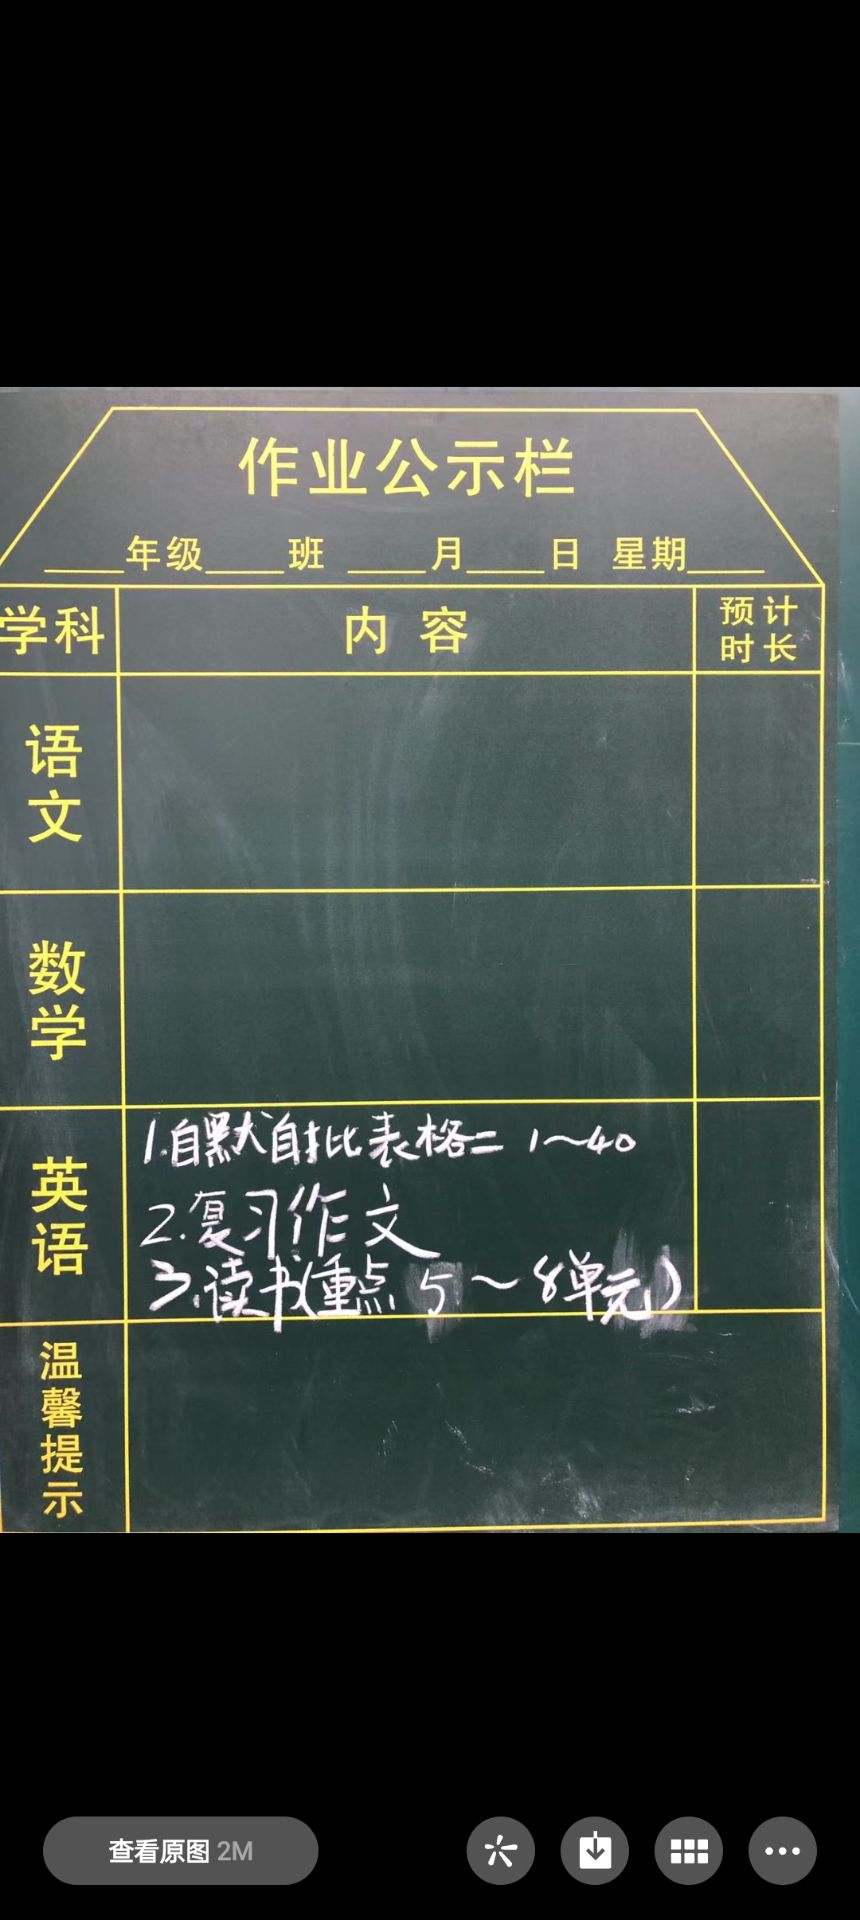 作业公示栏
____年级____班 ____月____日 星期____
学科 内容 预计时长
语文
数学
英语
1.自默自批比表格二 1～40
2.复习作文
3.读书(重点 5～8单元)
温馨提示
查看原图 2M